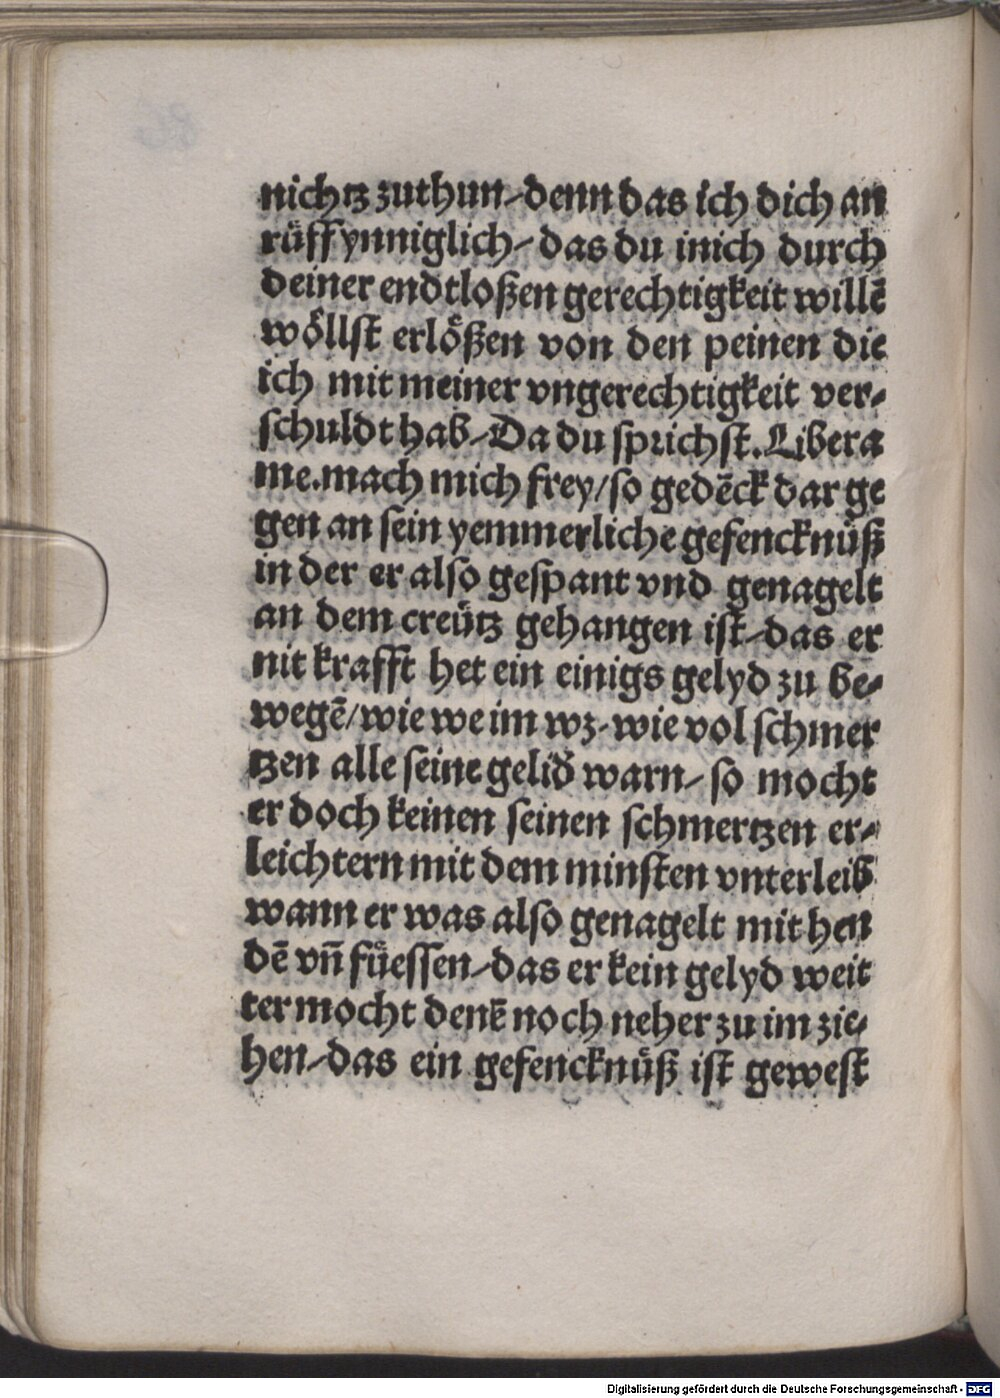 nichtz zuthun-denn das ich dich an
rüffynniglich-das du mich durch
deiner endtloßen gerechtigkeit willē
wöllst erlößen von den peinen die
ich mit meiner vngerechtigkeit ver-
schuldt hab-Da du sprichst. Libera
me.mach mich frey/so gedēck dar ge
gen an sein yemmerliche gefencknüß
in der er also gespant vnd genagelt
an dem creütz gehangen ist-das er
nit krafft het ein einigs gelyd zu be-
wegē/wie we im wz-wie vol schmer
tzen alle seine gelid̄ warn-so mocht
er doch keinen seinen schmertzen er-
leichtern mit dem minsten vnterleib
wann er was also genagelt mit hen
dē vn̄ füessen-das er kein gelyd weit
ter mocht denē noch neher zu im zie-
hen-das ein gefencknüß ist gewest
Digitalisierung gefördert durch die Deutsche Forschungsgemeinschaft - DFG